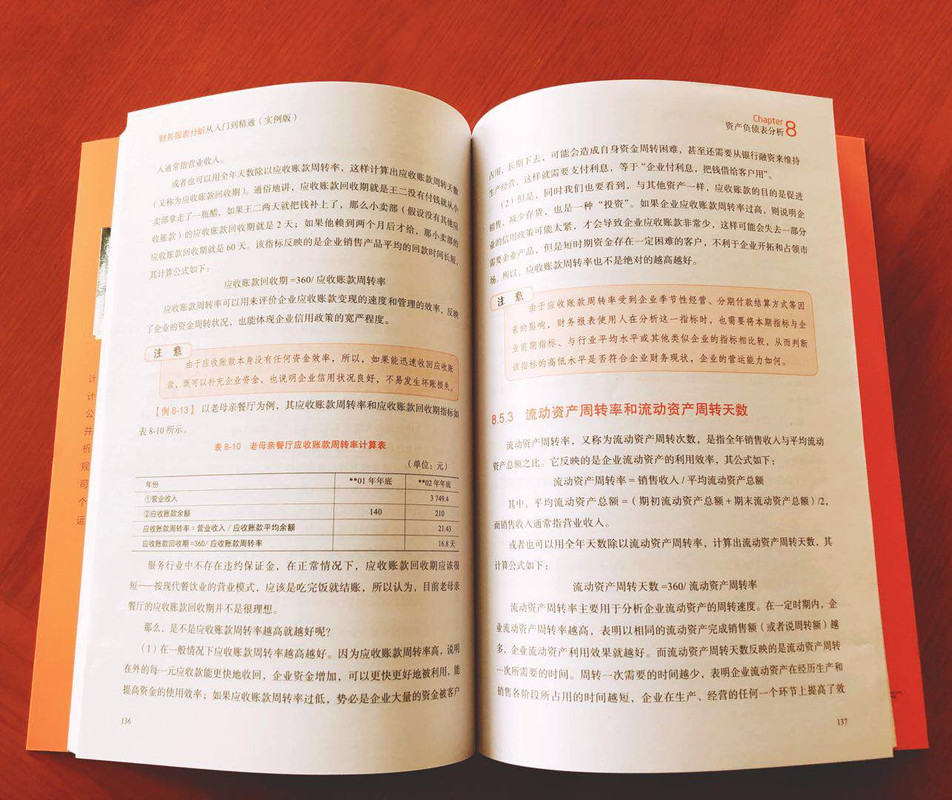 财务报表分析从入门到精通（实例版）
人通常指营业收入。
或者也可以用全年天数除以应收账款周转率，这样计算出应收账款周转天数
（又称为应收账款回收期）。通俗地讲，应收账款回收期就是王二没有付钱就从小
卖部拿走了一瓶醋，如果王二两天就把钱补上了，那么小卖部（假设没有其他应
收账款）的应收账款回收期就是 2 天；如果他赖到两个月后才给，那小卖部的
应收账款回收期就是 60 天。该指标反映的是企业销售产品平均的回款时间长短，
其计算公式如下：
应收账款回收期 =360/ 应收账款周转率
应收账款周转率可以用来评价企业应收账款变现的速度和管理的效率，反映
了企业的资金周转状况，也能体现企业信用政策的宽严程度。
注 意
由于应收账款本身没有任何资金效率，所以，如果能迅速收回应收账
款，既可以补充企业资金，也说明企业信用状况良好，不易发生坏账损失。
【例 8-13】以老母亲餐厅为例，其应收账款周转率和应收账款回收期指标如
表 8-10 所示。
表 8-10 老母亲餐厅应收账款周转率计算表
（单位：元）
年份 **01 年年底 **02 年年底
①营业收入 3 749.4
②应收账款余额 140 210
应收账款周转率 = 营业收入 / 应收账款平均余额 21.43
应收账款回收期 =360/ 应收账款周转率 16.8 天
服务行业中不存在违约保证金，在正常情况下，应收账款回收期应该很
短——按现代餐饮业的营业模式，应该是吃完饭就结账，所以认为，目前老母亲
餐厅的应收账款回收期并不是很理想。
那么，是不是应收账款周转率越高就越好呢？
（1）在一般情况下应收账款周转率越高越好。因为应收账款周转率高，说明
在外的每一元应收款能更快地收回，企业资金增加，可以更快更好地被利用，能
提高资金的使用效率；如果应收账款周转率过低，势必是企业大量的资金被客户
136
Chapter 8
资产负债表分析
占用，长期下去，可能会造成自身资金周转困难，甚至还需要从银行融资来维持
生产经营，这样就需要支付利息，等于“企业付利息，把钱借给客户用”。
（2）但是，同时我们也要看到，与其他资产一样，应收账款的目的是促进
销售，减少存货，也是一种“投资”。如果企业应收账款周转率过高，则说明企
业的信用政策可能太紧，才会导致企业应收账款非常少，这样可能会失去一部分
需要企业产品，但是短时期资金存在一定困难的客户，不利于企业开拓和占领市
场。所以，应收账款周转率也不是绝对的越高越好。
注 意
由于应收账款周转率受到企业季节性经营、分期付款结算方式等因
素的影响，财务报表使用人在分析这一指标时，也需要将本期指标与企
业前期指标、与行业平均水平或其他类似企业的指标相比较，从而判断
该指标的高低水平是否符合企业财务现状，企业的营运能力如何。
8.5.3 流动资产周转率和流动资产周转天数
流动资产周转率，又称为流动资产周转次数，是指全年销售收入与平均流动
资产总额之比。它反映的是企业流动资产的利用效率，其公式如下：
流动资产周转率 = 销售收入 / 平均流动资产总额
其中，平均流动资产总额 =（期初流动资产总额 + 期末流动资产总额）/2，
而销售收入通常指营业收入。
或者也可以用全年天数除以流动资产周转率，计算出流动资产周转天数，其
计算公式如下：
流动资产周转天数 =360/ 流动资产周转率
流动资产周转率主要用于分析企业流动资产的周转速度。在一定时期内，企
业流动资产周转率越高，表明以相同的流动资产完成销售额（或者说周转额）越
多，企业流动资产利用效果就越好。而流动资产周转天数反映的是流动资产周转
一次所需要的时间。周转一次需要的时间越少，表明企业流动资产在经历生产和
销售各阶段所占用的时间越短，企业在生产、经营的任何一个环节上提高了效
137
计
计
公
并
析
观
司
个
运